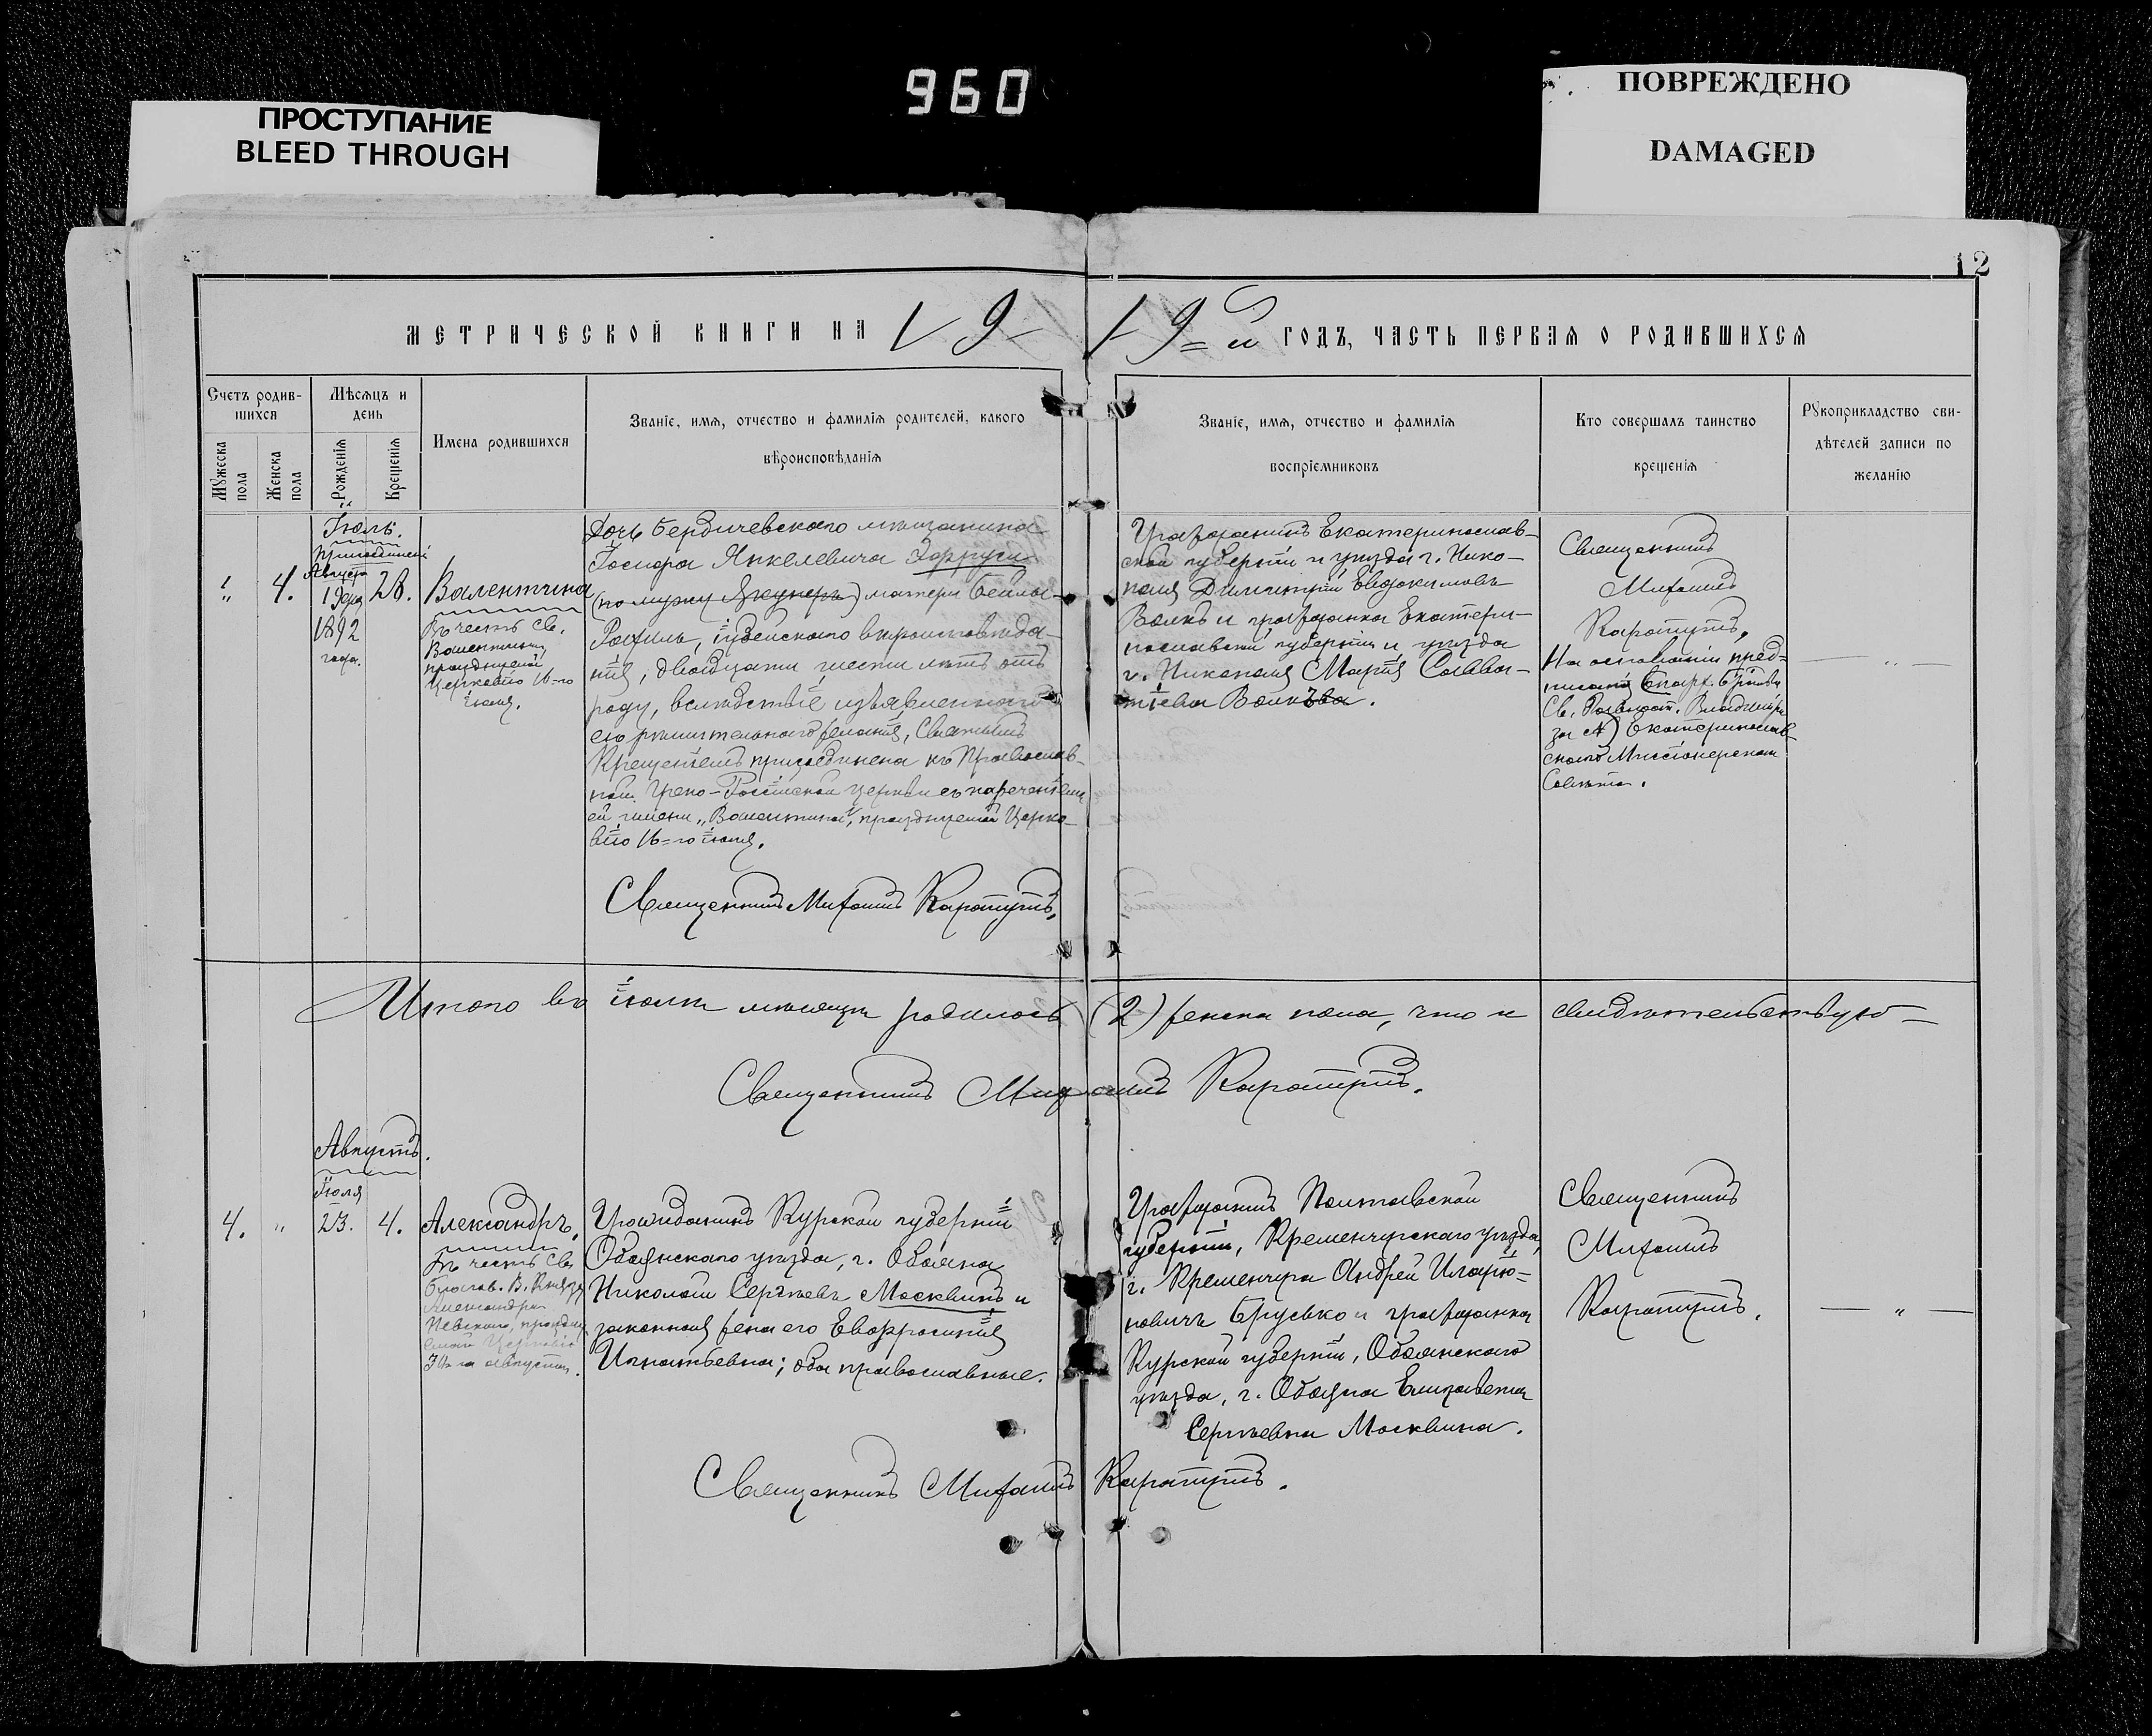 960
ПРОСТУПАНИЕ
BLEED THROUGH
ПОВРЕЖДЕНО
DAMAGED
12
МЕТРИЧЕСКОЙ КНИГИ НА 19
19=й ГОДЪ, ЧАСТЬ ПЕРВАЯ О РОДИВШИХСЯ
Счетъ родив-
шихся
Мужеска
пола
Женска
пола
Мѣсяцъ и
день
Рожденія
Крещенія
Имена родившихся
Званіе, имя, отчество и фамилія родителей, какого
вѣроисповѣданія
Званіе, имя, отчество и фамилія
воспріемниковъ
Кто совершалъ таинство
крещенія
Рукоприкладство сви-
дѣтелей записи по
желанію
Іюль.
Августа
1
1892
года.
"
4.
28.
Валентина
Въ честь Св.
Валентины,
празднуемой
Церковію 16=го
іюля.
Дочь Бердичевскаго мѣщанина
Іосифа Янкелевича
(по мужу ) матери Бейлы-
Рахиль, іудейскаго вѣроисповѣда-
нія, двадцати шести лѣтъ отъ
роду, вслѣдствіе изъявленнаго
ею рѣшительнаго желанія, Святымъ
Крещеніемъ присоединена къ Православ-
ной Греко-Россійской Церкви съ нареченіемъ
ей имени „Валентина", празднуемой Церко-
вію 16=го іюля.
Священникъ Михаилъ Каратутъ.
Гражданинъ Екатеринослав-
ской губерніи и уѣзда г. Нико-
поля Димитрій Евдокимовъ
Волкъ и гражданка Екатери-
нославской губерніи и уѣзда
г. Никополя Марія Савва-
тіева Волкъва.
Священникъ
Михаилъ
Каратутъ.
На основаніи пред=
писанія Епарх. Братства
Св. Равноап. Владиміра
за № Екатеринослав-
скаго Миссіонерскаго
Совѣта.
— " —
Итого въ іюлѣ мѣсяцѣ родилось (2) женска пола, что и свидѣтельствую=
Священникъ Михаилъ Каратутъ.
Августъ.
Іюля
4.
"
23.
4.
Александръ.
Въ честь Св.
благов. В. Князя
Александра
Невскаго, праздну
емаго Церковію
30=го августа.
Гражданинъ Курской губерніи
Обоянскаго уѣзда, г. Обояна
Николай Сергѣевъ Москвинъ и
законная жена его Евфросинія
Игнатьевна; оба православные.
Гражданинъ Полтавской
губерніи, Кременчугскаго уѣзда,
г. Кременчуга Андрей Иларіо=
новичъ Брусько и гражданка
Курской губерніи, Обоянскаго
уѣзда, г. Обояна Елизавета
Сергѣевна Москвина.
Священникъ
Михаилъ
Каратутъ.
— " —
Священникъ Михаилъ Каратутъ.